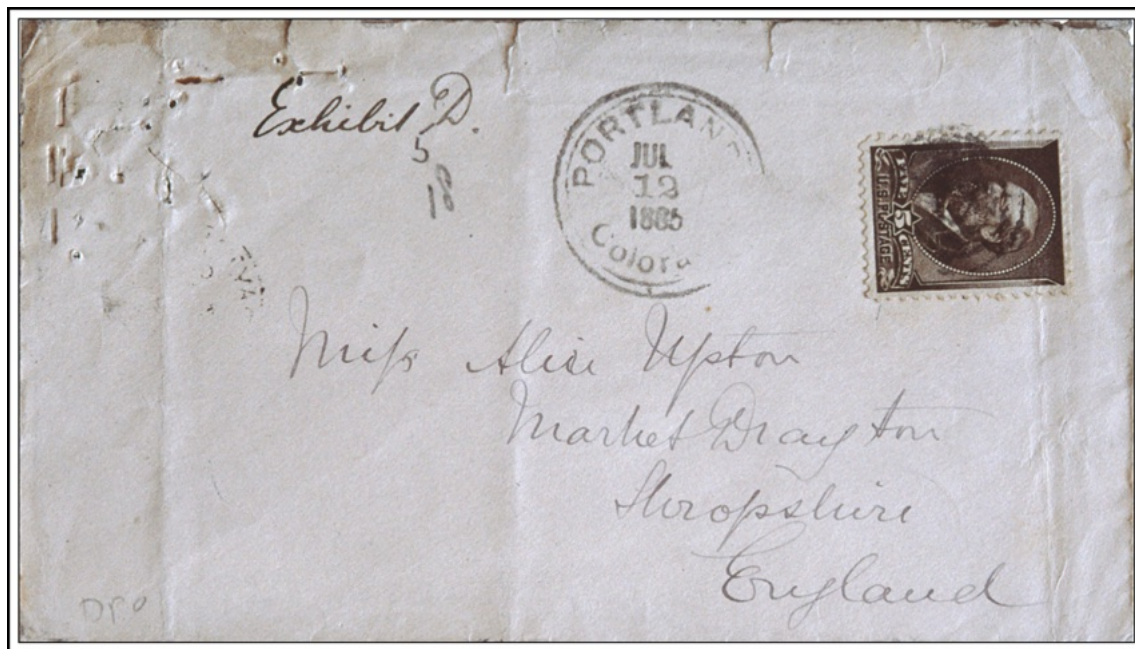 Exhibit D.
5
18
PORTLAND
JUL
12
1885
Colora
FIVE 5 CENTS
U.S. POSTAGE
Miss Alice Upton
Market Drayton
Shropshire
England
DPO